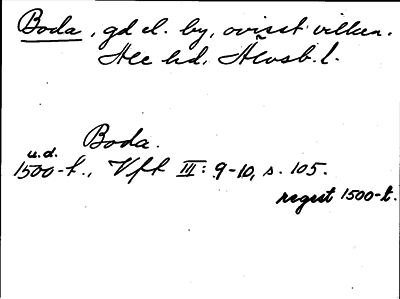 Boda, gd el. by, ovisst vilken.
Ale hd, Älvsb. l.
Boda.
u.d.
1500-t., Vft III: 9-10, s. 105.
regest 1500-t.